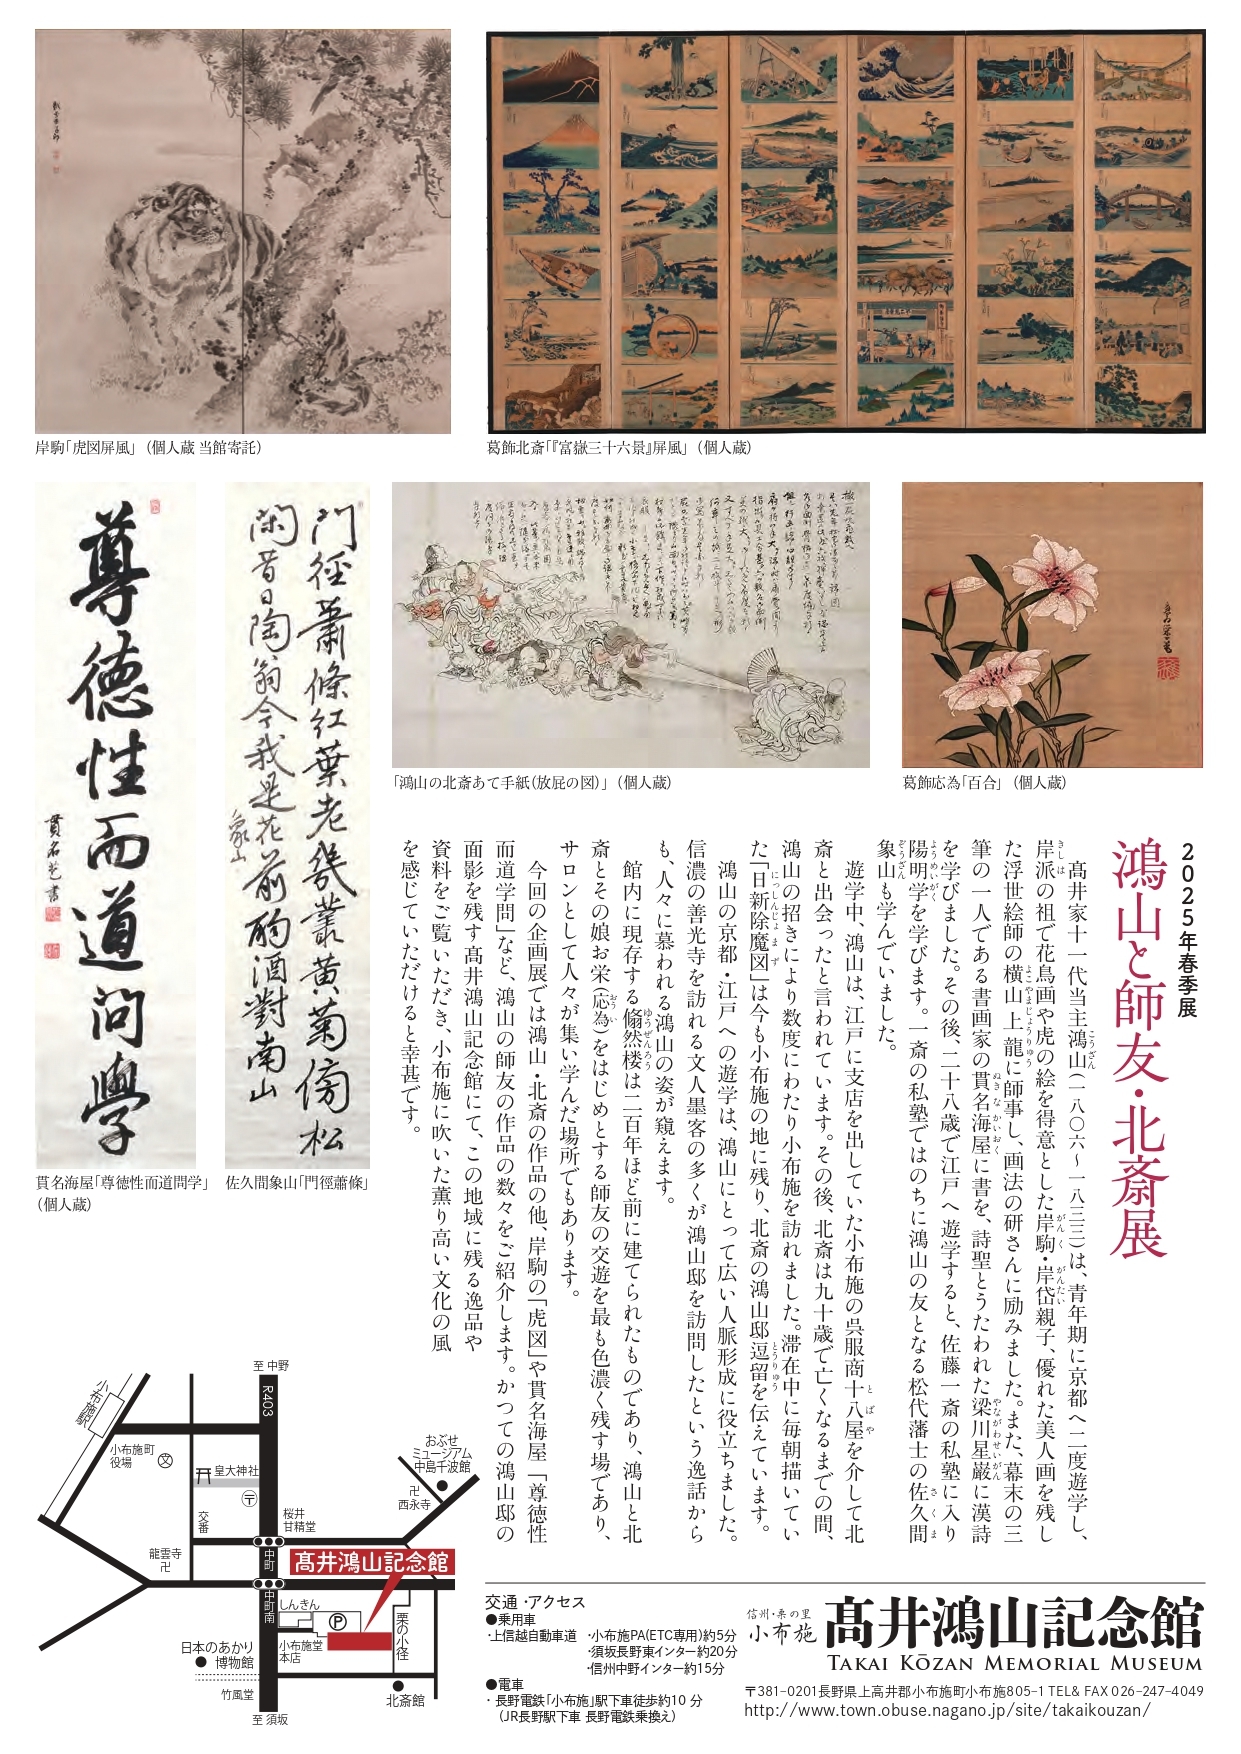 岸駒「虎図屏風」（個人蔵 当館寄託）
葛飾北斎「『富嶽三十六景』屏風」（個人蔵）
「鴻山の北斎あて手紙（放屁の図）」（個人蔵）
葛飾応為「百合」（個人蔵）
尊徳性而道問學
貫名苞書
貫名海屋「尊徳性而道問学」
（個人蔵）
門徑蕭條紅葉老幾叢黄菊傍松
閑昔日陶翁今我是花前酌酒對南山
象山
佐久間象山「門徑蕭條」
2025年春季展
鴻山と師友・北斎展
髙井家十一代当主鴻山（一八〇六〜一八三三）は、青年期に京都へ二度遊学し、
岸派の祖で花鳥画や虎の絵を得意とした岸駒・岸岱親子、優れた美人画を残し
た浮世絵師の横山上龍に師事し、画法の研さんに励みました。また、幕末の三
筆の一人である書画家の貫名海屋に書を、詩聖とうたわれた梁川星巌に漢詩
を学びました。その後、二十八歳で江戸へ遊学すると、佐藤一斎の私塾に入り
陽明学を学びます。一斎の私塾ではのちに鴻山の友となる松代藩士の佐久間
象山も学んでいました。
遊学中、鴻山は、江戸に支店を出していた小布施の呉服商十八屋を介して北
斎と出会ったと言われています。その後、北斎は九十歳で亡くなるまでの間、
鴻山の招きにより数度にわたり小布施を訪れました。滞在中に毎朝描いてい
た「日新除魔図」は今も小布施の地に残り、北斎の鴻山邸逗留を伝えています。
鴻山の京都・江戸への遊学は、鴻山にとって広い人脈形成に役立ちました。
信濃の善光寺を訪れる文人墨客の多くが鴻山邸を訪問したという逸話から
も、人々に慕われる鴻山の姿が窺えます。
館内に現存する翛然楼は二百年ほど前に建てられたものであり、鴻山と北
斎とその娘お栄（応為）をはじめとする師友の交遊を最も色濃く残す場であり、
サロンとして人々が集い学んだ場所でもあります。
今回の企画展では鴻山・北斎の作品の他、岸駒の「虎図」や貫名海屋「尊徳性
而道問学」など、鴻山の師友の作品の数々をご紹介します。かつての鴻山邸の
面影を残す髙井鴻山記念館にて、この地域に残る逸品や
資料をご覧いただき、小布施に吹いた薫り高い文化の風
を感じていただけると幸甚です。
至 中野
R403
小布施駅
小布施町
役場
文
皇大神社
〒
交番
桜井
甘精堂
おぶせ
ミュージアム
中島千波館
卍
西永寺
龍雲寺
卍
中町
髙井鴻山記念館
中町南
しんきん
P
栗の小径
小布施堂
本店
日本のあかり
博物館
竹風堂
北斎館
至 須坂
交通・アクセス
●乗用車
・上信越自動車道 ・小布施PA（ETC専用）約5分
・須坂長野東インター約20分
・信州中野インター約15分
●電車
・長野電鉄「小布施」駅下車徒歩約10分
（JR長野駅下車 長野電鉄乗換え）
信州・栗の里
小布施
髙井鴻山記念館
TAKAI KŌZAN MEMORIAL MUSEUM
〒381-0201長野県上高井郡小布施町小布施805-1 TEL& FAX 026-247-4049
http://www.town.obuse.nagano.jp/site/takaikouzan/